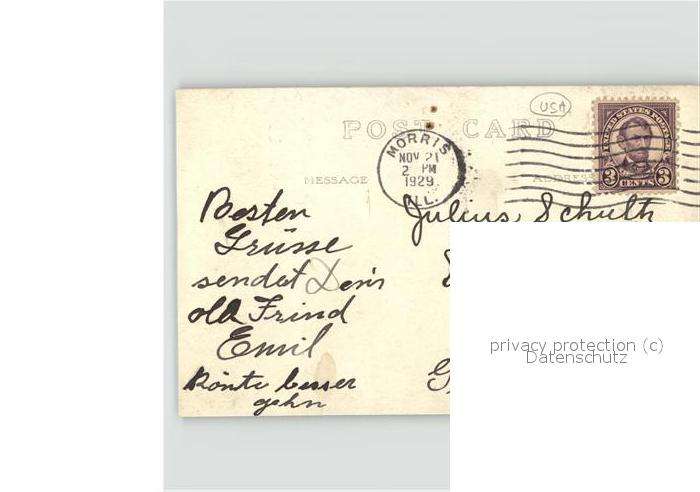 USA
POST CARD
MORRIS
NOV 21
2 PM
1929
ILL.
UNITED STATES POSTAGE
3 CENTS 3
MESSAGE
ADDRESS
Besten
Grüsse
sendet Dein
old Frind
Emil
Könte besser
gehn
Julius Schulth
privacy protection (c)
Datenschutz